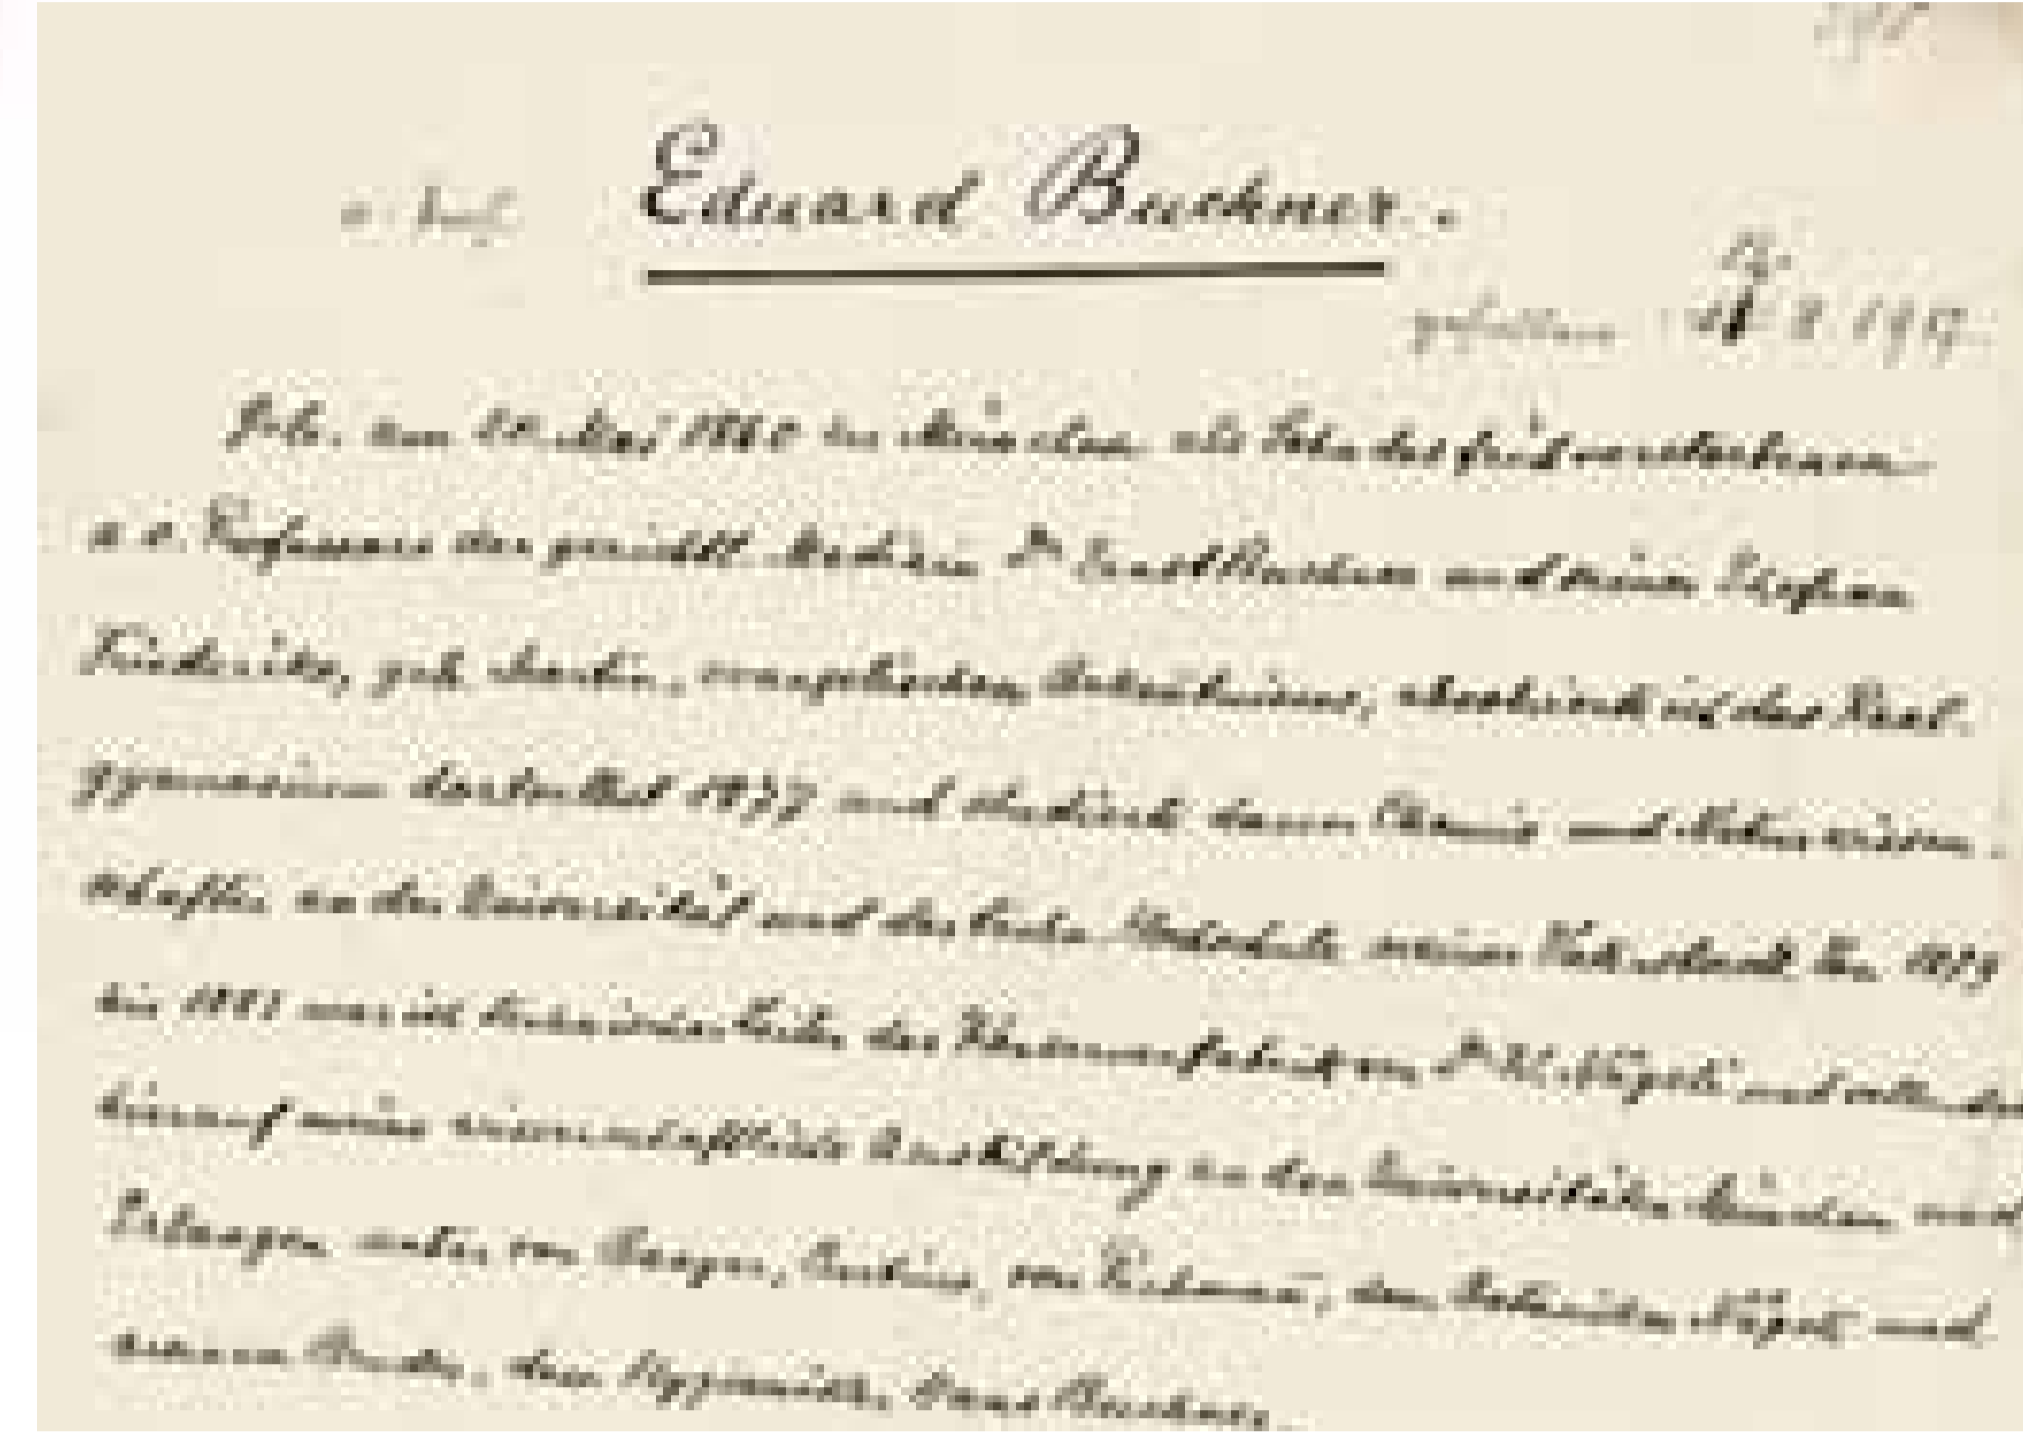 Eduard Buchner.
gefallen 1917.
Geb. am 20. Mai 1860 in München als Sohn des früh verstorbenen
a. o. Professors der gerichtl. Medizin Dr Ernst Buchner und seiner Ehefrau
Friederike, geb. Martin, evangelischen Bekenntnisses, absolvierte ich das Real-
gymnasium dortselbst 1877 und studierte dann Chemie und Naturwissen-
schaften an der Universität und der techn. Hochschule meiner Vaterstadt. Von 1879
bis war ich technischer Leiter der Konservenfabrik von Dr Nägeli und
hierauf meine wissenschaftliche Ausbildung an den Universitäten München und
Erlangen unter von Baeyer, Curtius, von Pechmann, dem Botaniker Nägeli und
meinem Bruder, dem Hygieniker Hans Buchner.